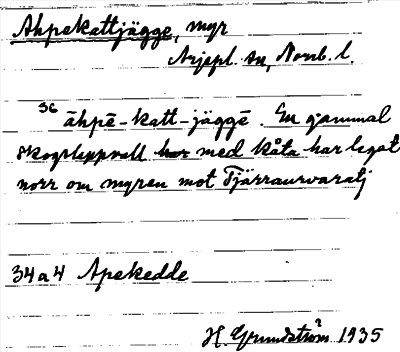 Ahpekattjägge, myr
Arjepl. sn, Norrb. l.
36 āhpē-katt-jäggē. En gammal
skogslappvall med kåta har legat
norr om myren mot Tjärraurvaratj
34a4 Apekedde
H. Grundström 1935